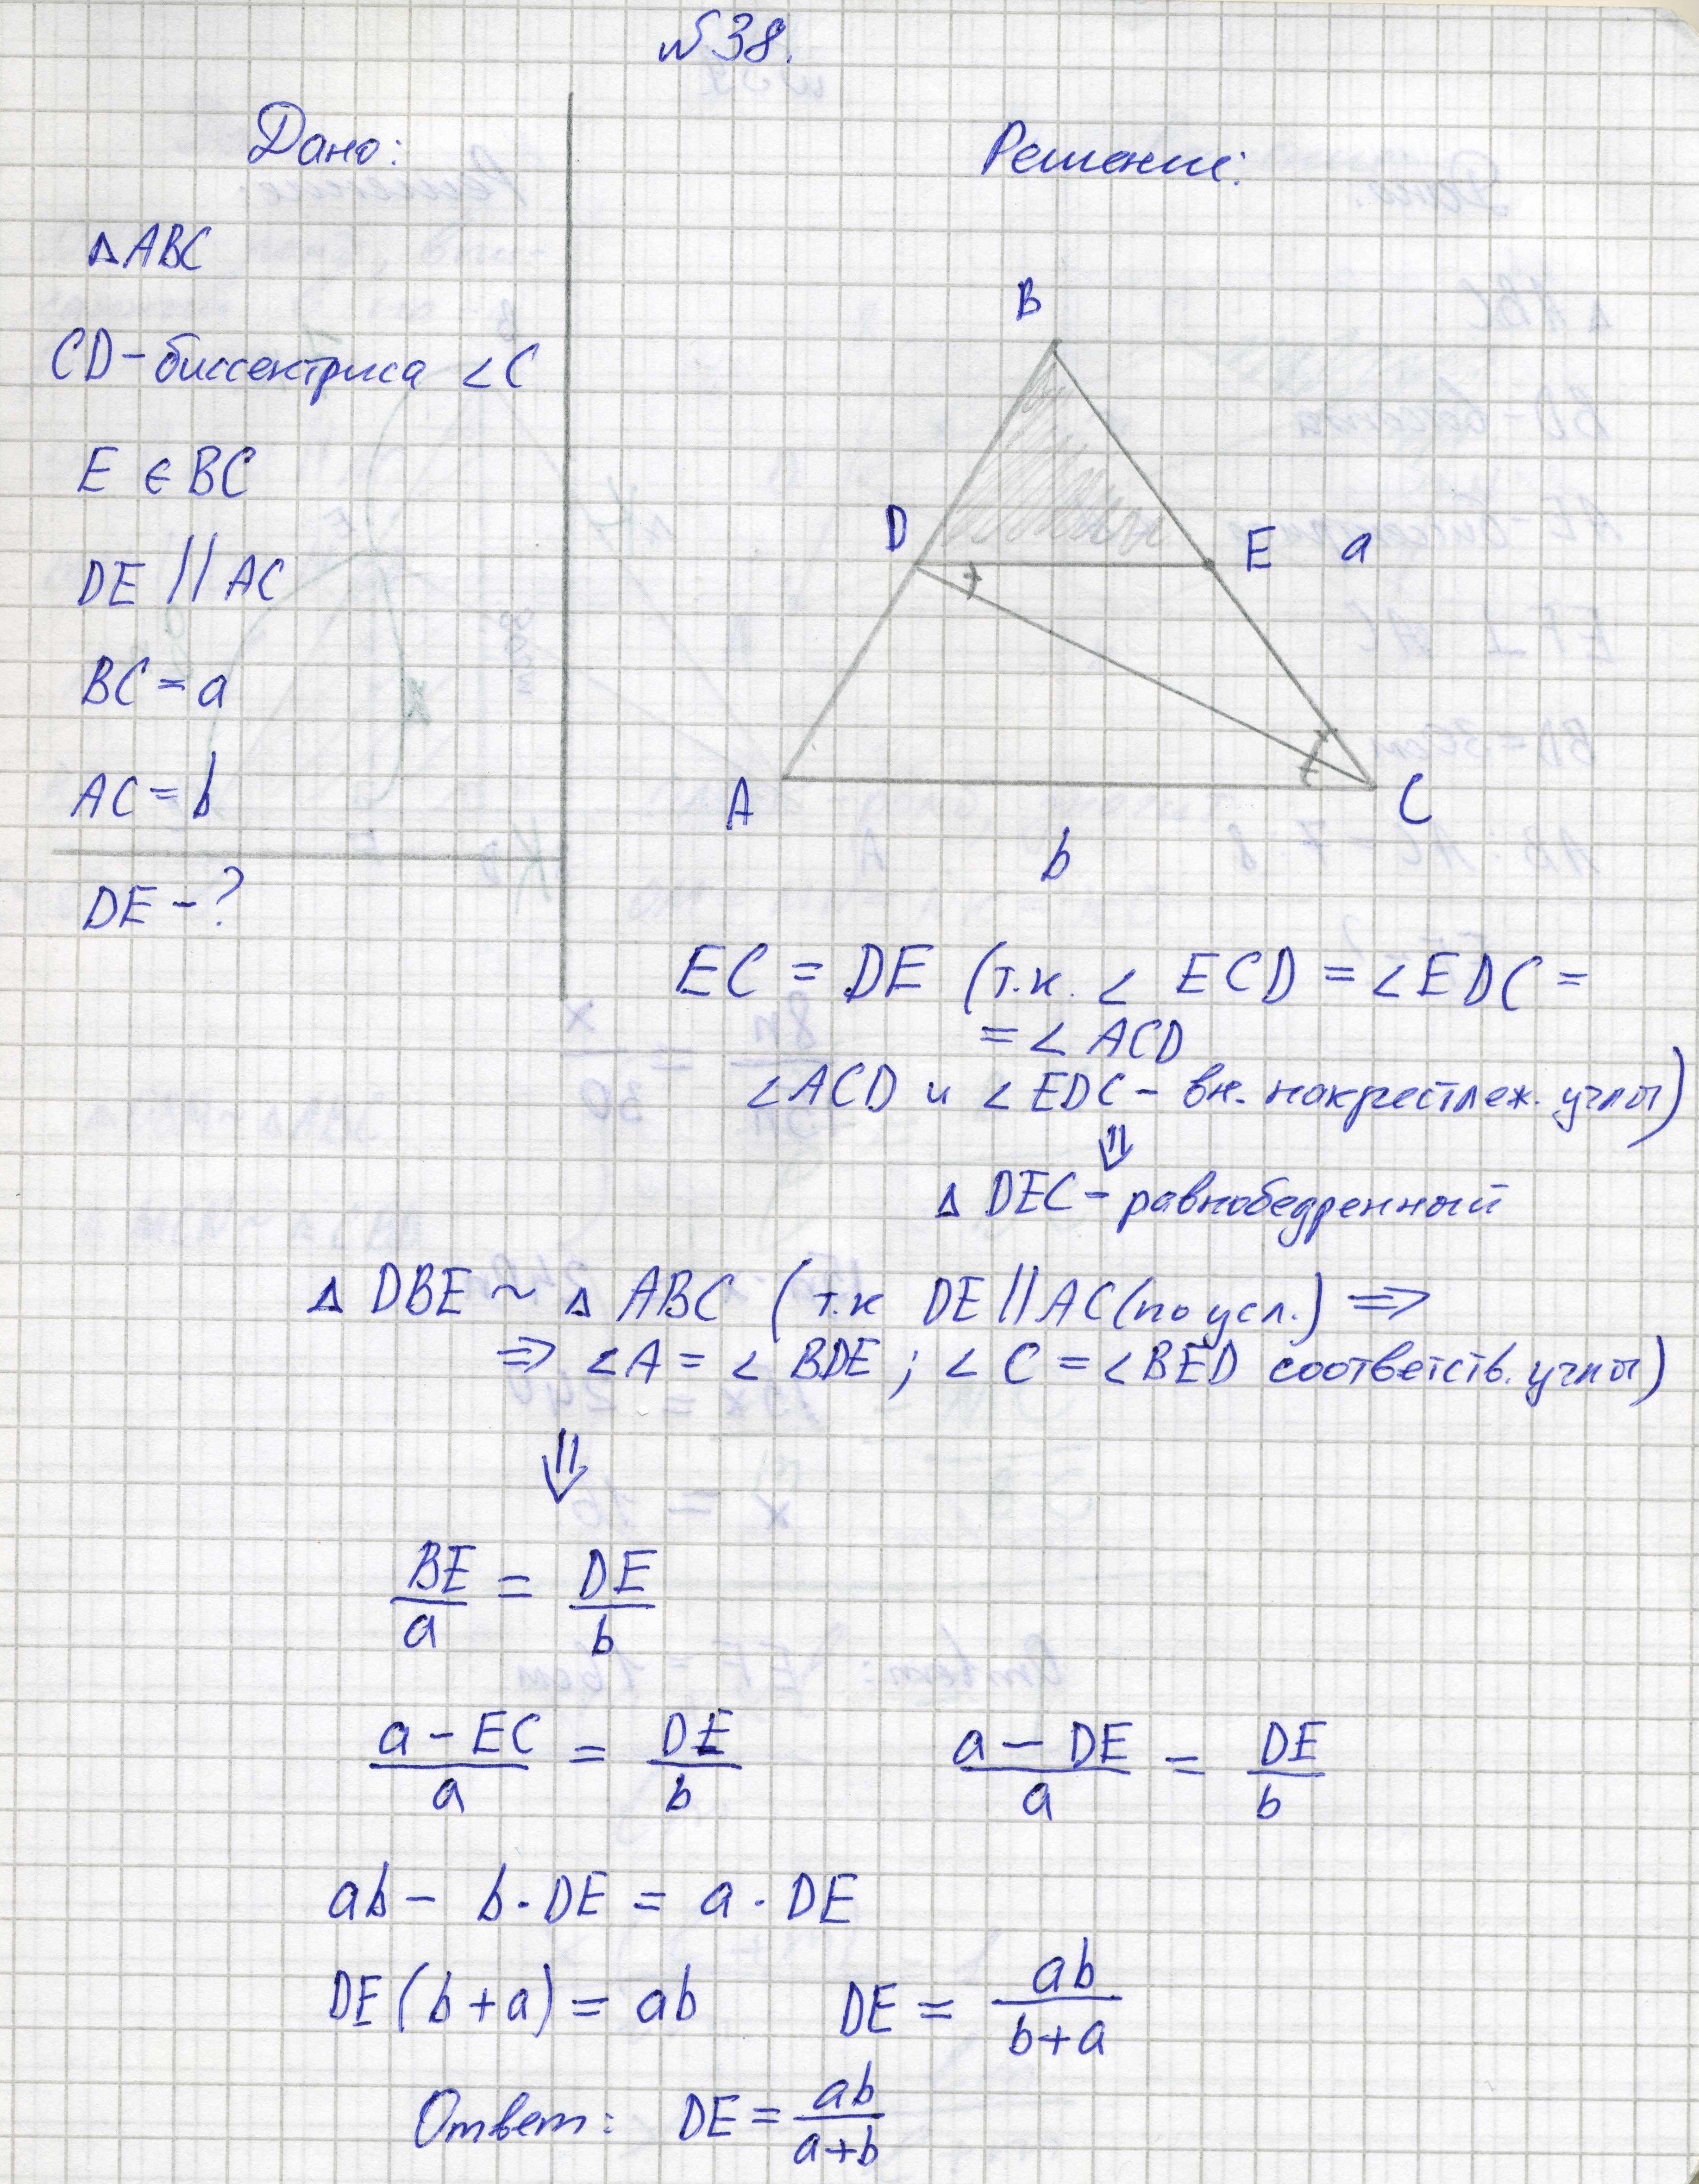 №38.
Дано:
△ABC
CD-биссектриса ∠C
E ∈ BC
DE || AC
BC = a
AC = b
DE - ?
Решение:
B
D
E a
A
C
b
EC = DE (т.к. ∠ ECD = ∠EDC =
= ∠ ACD
∠ACD и ∠EDC - вн. накрестлеж. углы)
⇓
△ DEC - равнобедренный
△ DBE ~ △ ABC (т.к DE || AC (по усл.) ⇒
⇒ ∠A = ∠ BDE ; ∠ C = ∠BED соответств. углы)
⇓
BE/a = DE/b
(a - EC)/a = DE/b (a - DE)/a = DE/b
ab - b · DE = a · DE
DE (b + a) = ab DE = ab/(b+a)
Ответ: DE = ab/(a+b)